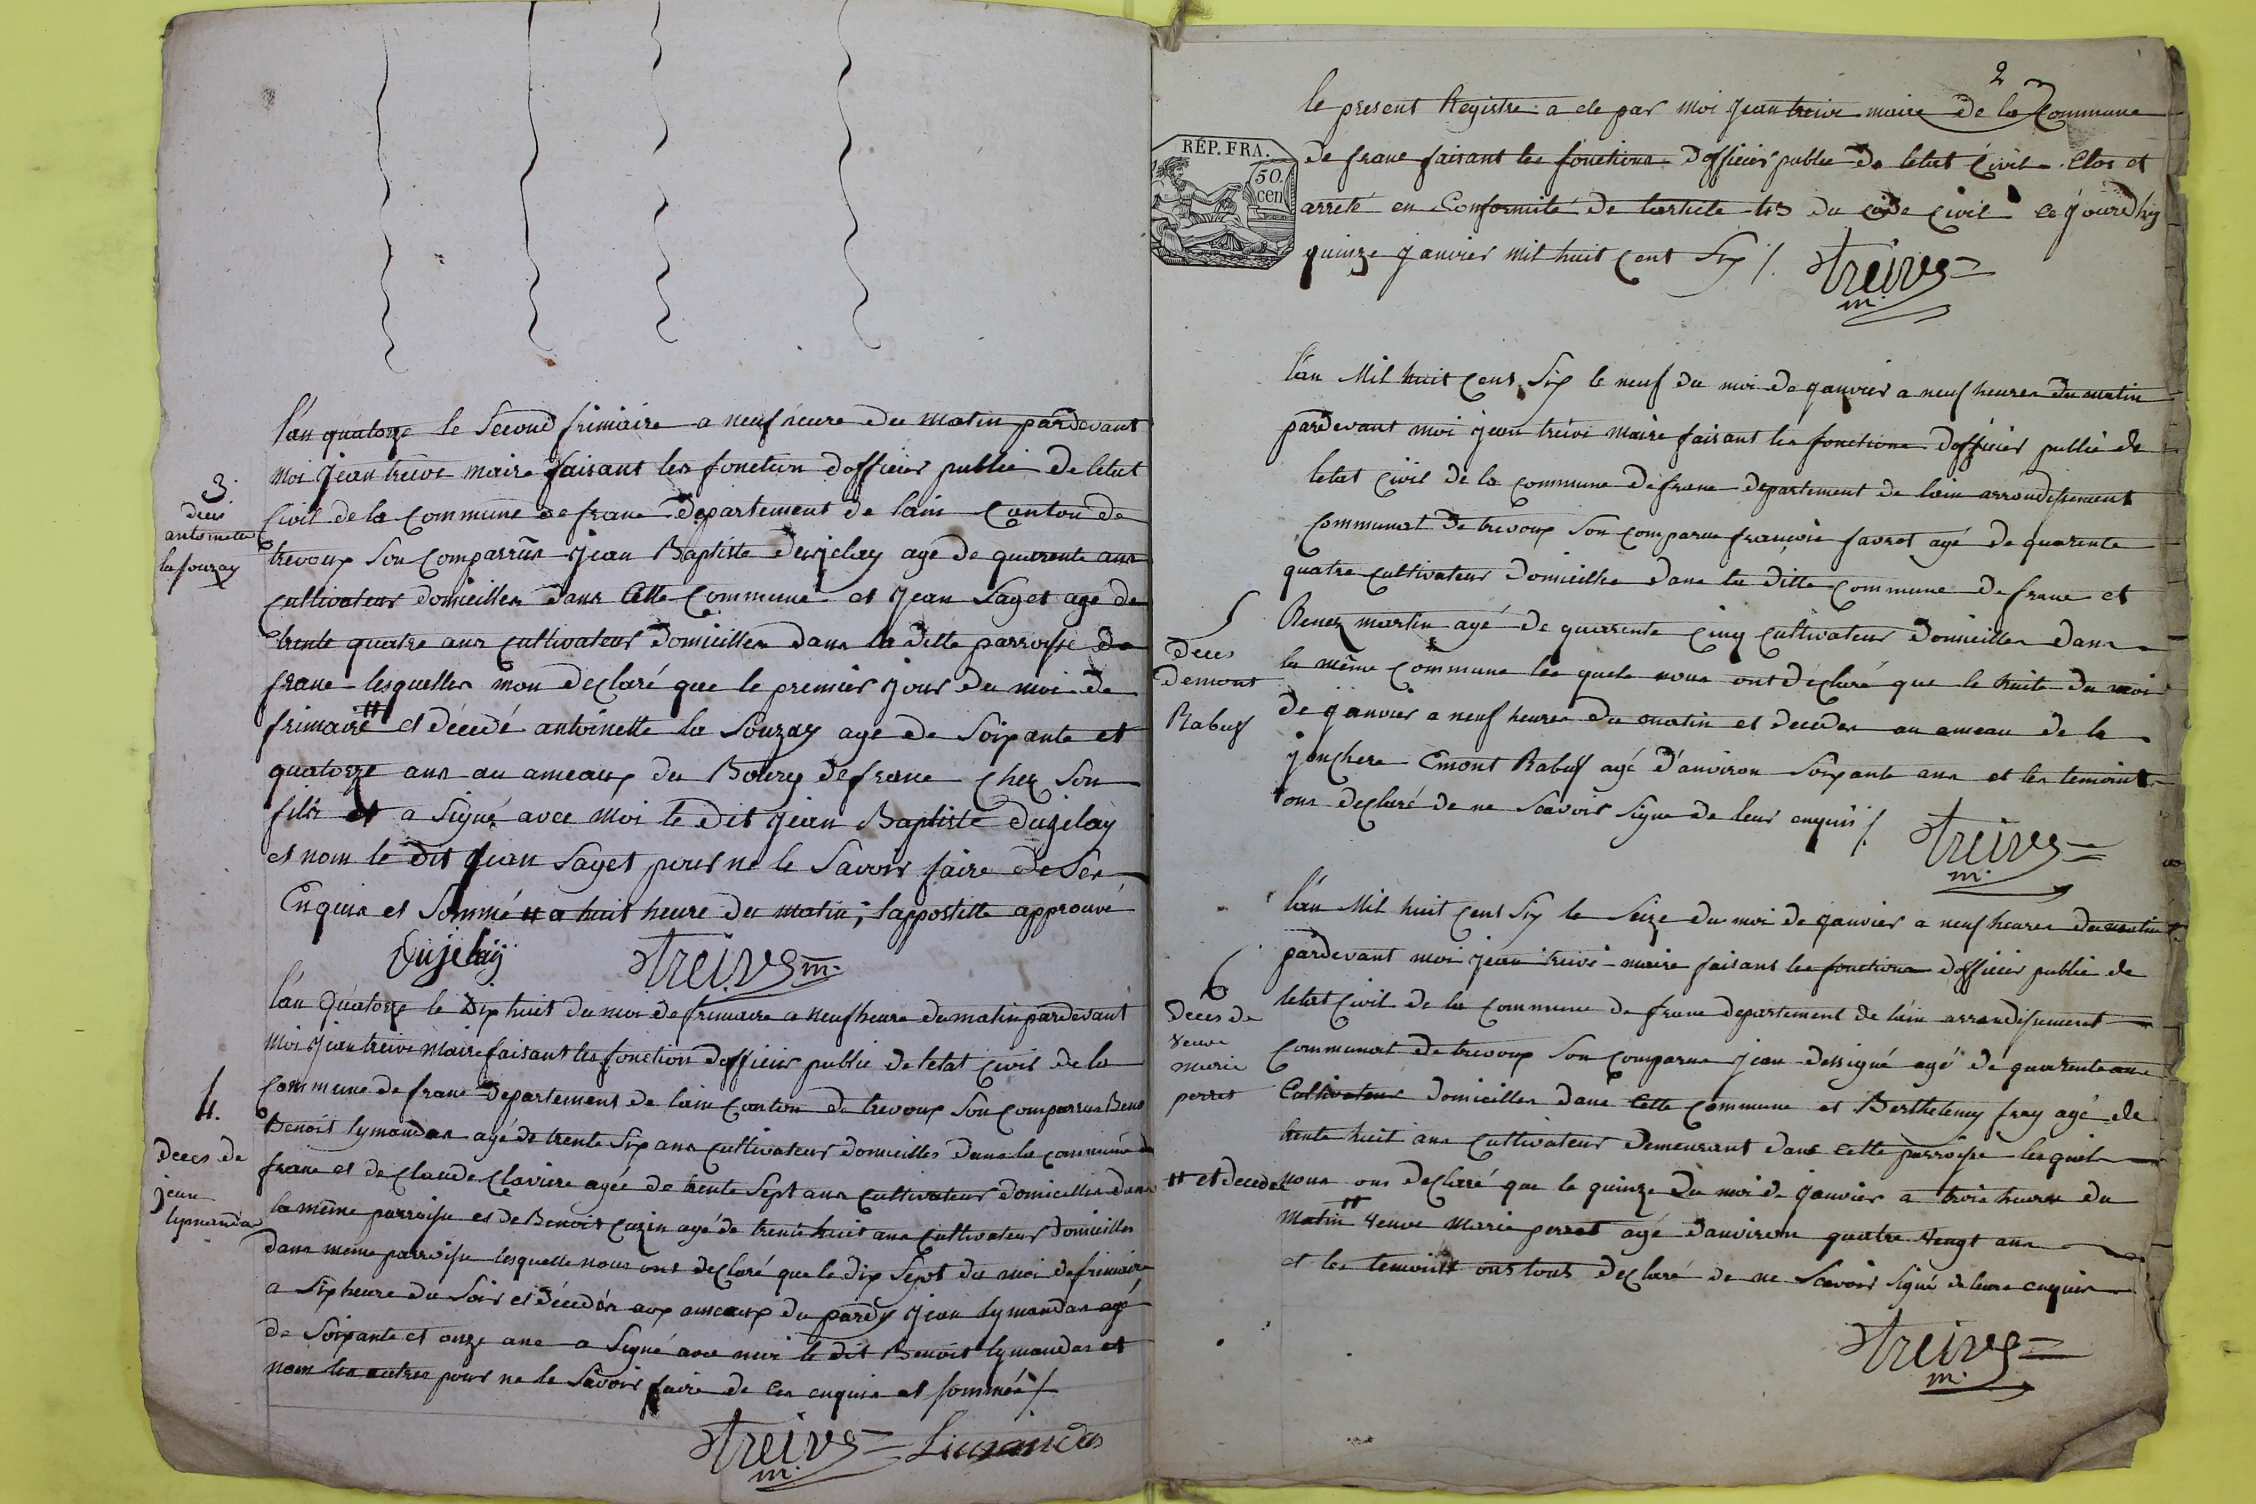 3.
deces
antoinette
la souzay
l'an quatorze le second frimaire a neuf heure du matin pardevant
moi jean treive maire faisant les fonction dofficier public de letat
Civil de la Commune de frane departement de lain Canton de
trevoux son comparrus jean Baptiste dujelay agé de quarente ans
cultivateur domicilles dans Cette Commune et jean Saget age de
trente quatre ans cultivateur domicilles dans la ditte parroisse de
frane lesquelles mon declaré que le premier jour du moi de
frimaire # et décedé antoinette la Souzay age de Soixante et
quatorze ans au ameaux du Bourg de frane chez Son
fils et a signé avec moi le dit jean Baptiste dujelay
et nom le dit jean Saget pour ne le Savoir faire de Ses
Enquis et Sommé # a huit heure du matin ; lappostille approuvé
Dujelay treive m.
4.
deces de
jean
lymandas
l'an quatorze le Dix huit du moi de frimaire a neuf heure du matin pardevant
Moi jean treive Maire faisant les fonction dofficier public de letat Civil de la
Commune de frane departement de lain Canton de trevoux Son comparrus Beno
Benoit lymandas agé de trente Six ans cultivateur domicilles dans la commune de
frane et de Claude Claviere agée de trente Sept ans cultivateur domicilles dans
la même parroisse et de Benoit Cuzin agé de trente huit ans cultivateur domicilles
dans meme parroisse lesquelle nous ont declaré que le dix Sept du moi de frimaire
a Six heure du Soir et décedés aux ameaux du pardy jean lymandas agé
de Soixante et onze ans a Signé avec moi le dit Benoit lymandas et
nom les autres pour ne le Savoir faire de ces enquis et Sommés /.
treive m. Limandas
2
le present Registre a ete par moi jean treive maire de la Commune
RÉP. FRA.
50.
cen
de frane faisant les fonctions dofficier public de letat Civil . Clos et
arreté en Conformité de larticle 43 du code Civil ce jourdhuy
quinze janvier mil huit Cent Six /.
treive m.
l'an Mil huit Cent Six le neuf du moi de janvier a neuf heures du matin
pardevant moi jean treive Maire faisant les fonctions dofficier public de
letat Civil de la commune de frane departement de lain arrondissement
communat de trevoux Son comparus françois favrot agé de quarente
quatre cultivateur domicilies dans la ditte commune de frane et
5
deces
demont
Rabuf
Renez martin agé de quarente Cinq cultivateur domicilles dans
la même commune les quels nous ont déclaré que le huite du moi
de janvier a neuf heures du matin et decedes au ameau de la
jonchere Emont Rabuf agé d'anviron Soixante ans et les temoins
ons declaré de ne Scavoir Signe de leur enquis /.
treive m.
l'an Mil huit Cent Six le Seize du moi de janvier a neuf heures du matin
pardevant moi jean treive maire faisant les fonctions dofficier public de
6
deces de
veuve
marie
perret
letat Civil de la commune de frane departement de lain arrondissement
communat de trevoux Son comparus jean dessigné agé de quarente ans
Cultivateur domicilles dans Cette commune et Berthelemy frey agé de
trente huit ans cultivateur demeurant dans Cette parroisse lesquels
# et decedes
nous ons declaré que le quinze du moi de janvier a trois heures du
Matin # veuve Marie perret agé danviron quatre vingt ans
et les temoins ons tous declaré de ne Scavoir Signé de leurs enquis
treive m.